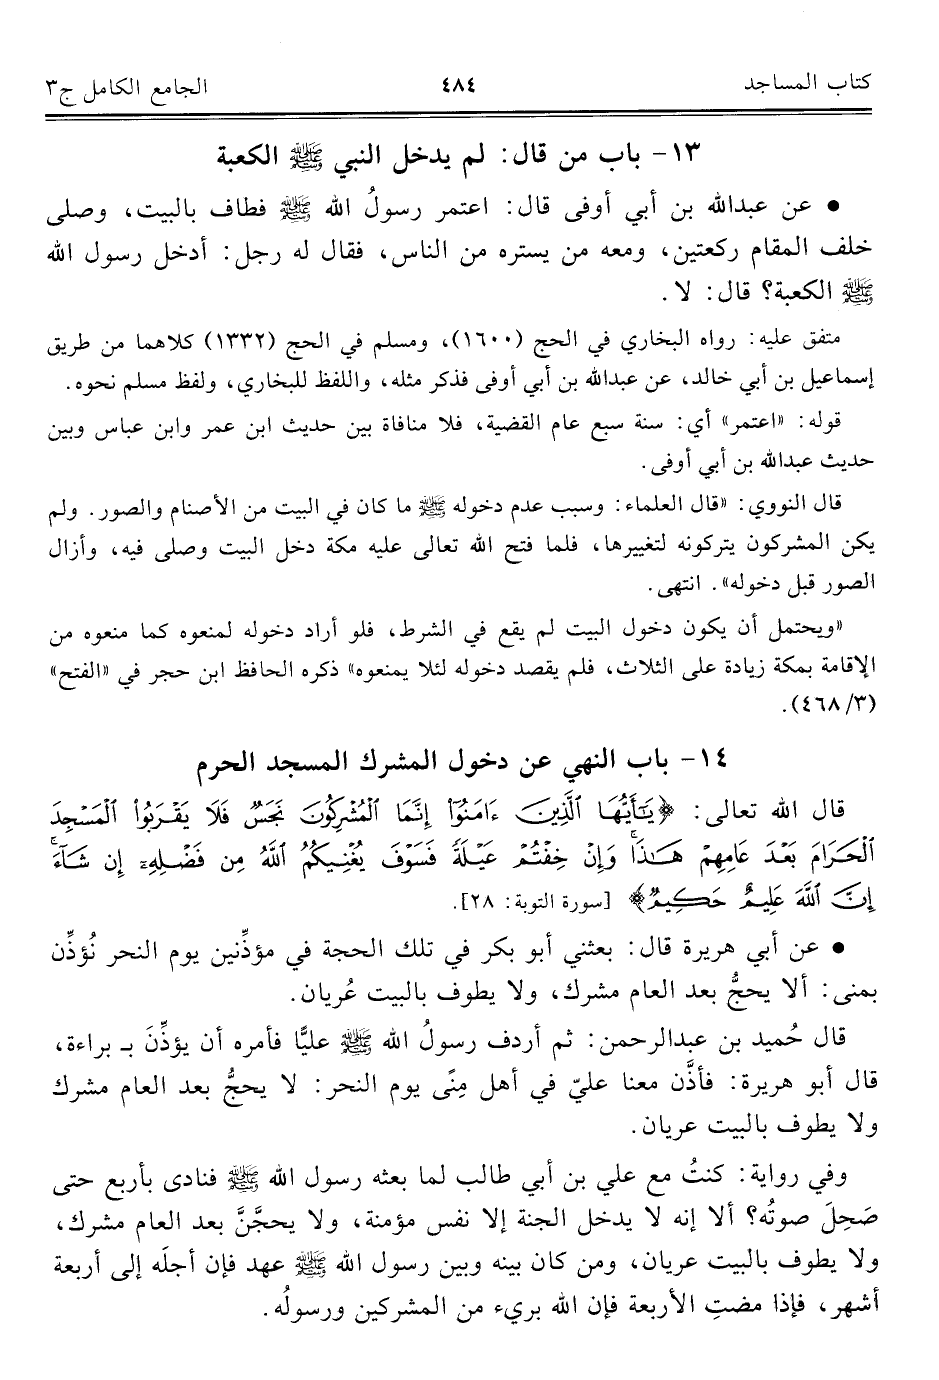 كتاب المساجد ٤٨٤ الجامع الكامل ج٣
١٣- باب من قال: لم يدخل النبي ﷺ الكعبة
● عن عبدالله بن أبي أوفى قال: اعتمر رسولُ الله ﷺ فطاف بالبيت، وصلى
خلف المقام ركعتين، ومعه من يستره من الناس، فقال له رجل: أدخل رسول الله
ﷺ الكعبة؟ قال: لا.
متفق عليه: رواه البخاري في الحج (١٦٠٠)، ومسلم في الحج (١٣٣٢) كلاهما من طريق
إسماعيل بن أبي خالد، عن عبدالله بن أبي أوفى فذكر مثله، واللفظ للبخاري، ولفظ مسلم نحوه.
قوله: «اعتمر» أي: سنة سبع عام القضية، فلا منافاة بين حديث ابن عمر وابن عباس وبين
حديث عبدالله بن أبي أوفى.
قال النووي: «قال العلماء: وسبب عدم دخوله ﷺ ما كان في البيت من الأصنام والصور. ولم
يكن المشركون يتركونه لتغييرها، فلما فتح الله تعالى عليه مكة دخل البيت وصلى فيه، وأزال
الصور قبل دخوله». انتهى.
«ويحتمل أن يكون دخول البيت لم يقع في الشرط، فلو أراد دخوله لمنعوه كما منعوه من
الإقامة بمكة زيادة على الثلاث، فلم يقصد دخوله لئلا يمنعوه» ذكره الحافظ ابن حجر في «الفتح»
(٣/ ٤٦٨).
١٤- باب النهي عن دخول المشرك المسجد الحرم
قال الله تعالى: ﴿يَٰٓأَيُّهَا ٱلَّذِينَ ءَامَنُوٓا۟ إِنَّمَا ٱلْمُشْرِكُونَ نَجَسٌ فَلَا يَقْرَبُوا۟ ٱلْمَسْجِدَ
ٱلْحَرَامَ بَعْدَ عَامِهِمْ هَٰذَا ۚ وَإِنْ خِفْتُمْ عَيْلَةً فَسَوْفَ يُغْنِيكُمُ ٱللَّهُ مِن فَضْلِهِۦٓ إِن شَآءَ ۚ
إِنَّ ٱللَّهَ عَلِيمٌ حَكِيمٌ﴾ [سورة التوبة: ٢٨].
● عن أبي هريرة قال: بعثني أبو بكر في تلك الحجة في مؤذِّنين يوم النحر نُؤذِّن
بمنى: ألا يحجُّ بعد العام مشرك، ولا يطوف بالبيت عُريان.
قال حُميد بن عبدالرحمن: ثم أردف رسولُ الله ﷺ عليًّا فأمره أن يؤذِّنَ بـ براءة،
قال أبو هريرة: فأذَّن معنا عليّ في أهل مِنًى يوم النحر: لا يحجُّ بعد العام مشرك
ولا يطوف بالبيت عريان.
وفي رواية: كنتُ مع علي بن أبي طالب لما بعثه رسول الله ﷺ فنادى بأربع حتى
صَحِلَ صوتُه؟ ألا إنه لا يدخل الجنة إلا نفس مؤمنة، ولا يحجَّنَّ بعد العام مشرك،
ولا يطوف بالبيت عريان، ومن كان بينه وبين رسول الله ﷺ عهد فإن أجلَه إلى أربعة
أشهر، فإذا مضتِ الأربعة فإن الله بريء من المشركين ورسولُه.